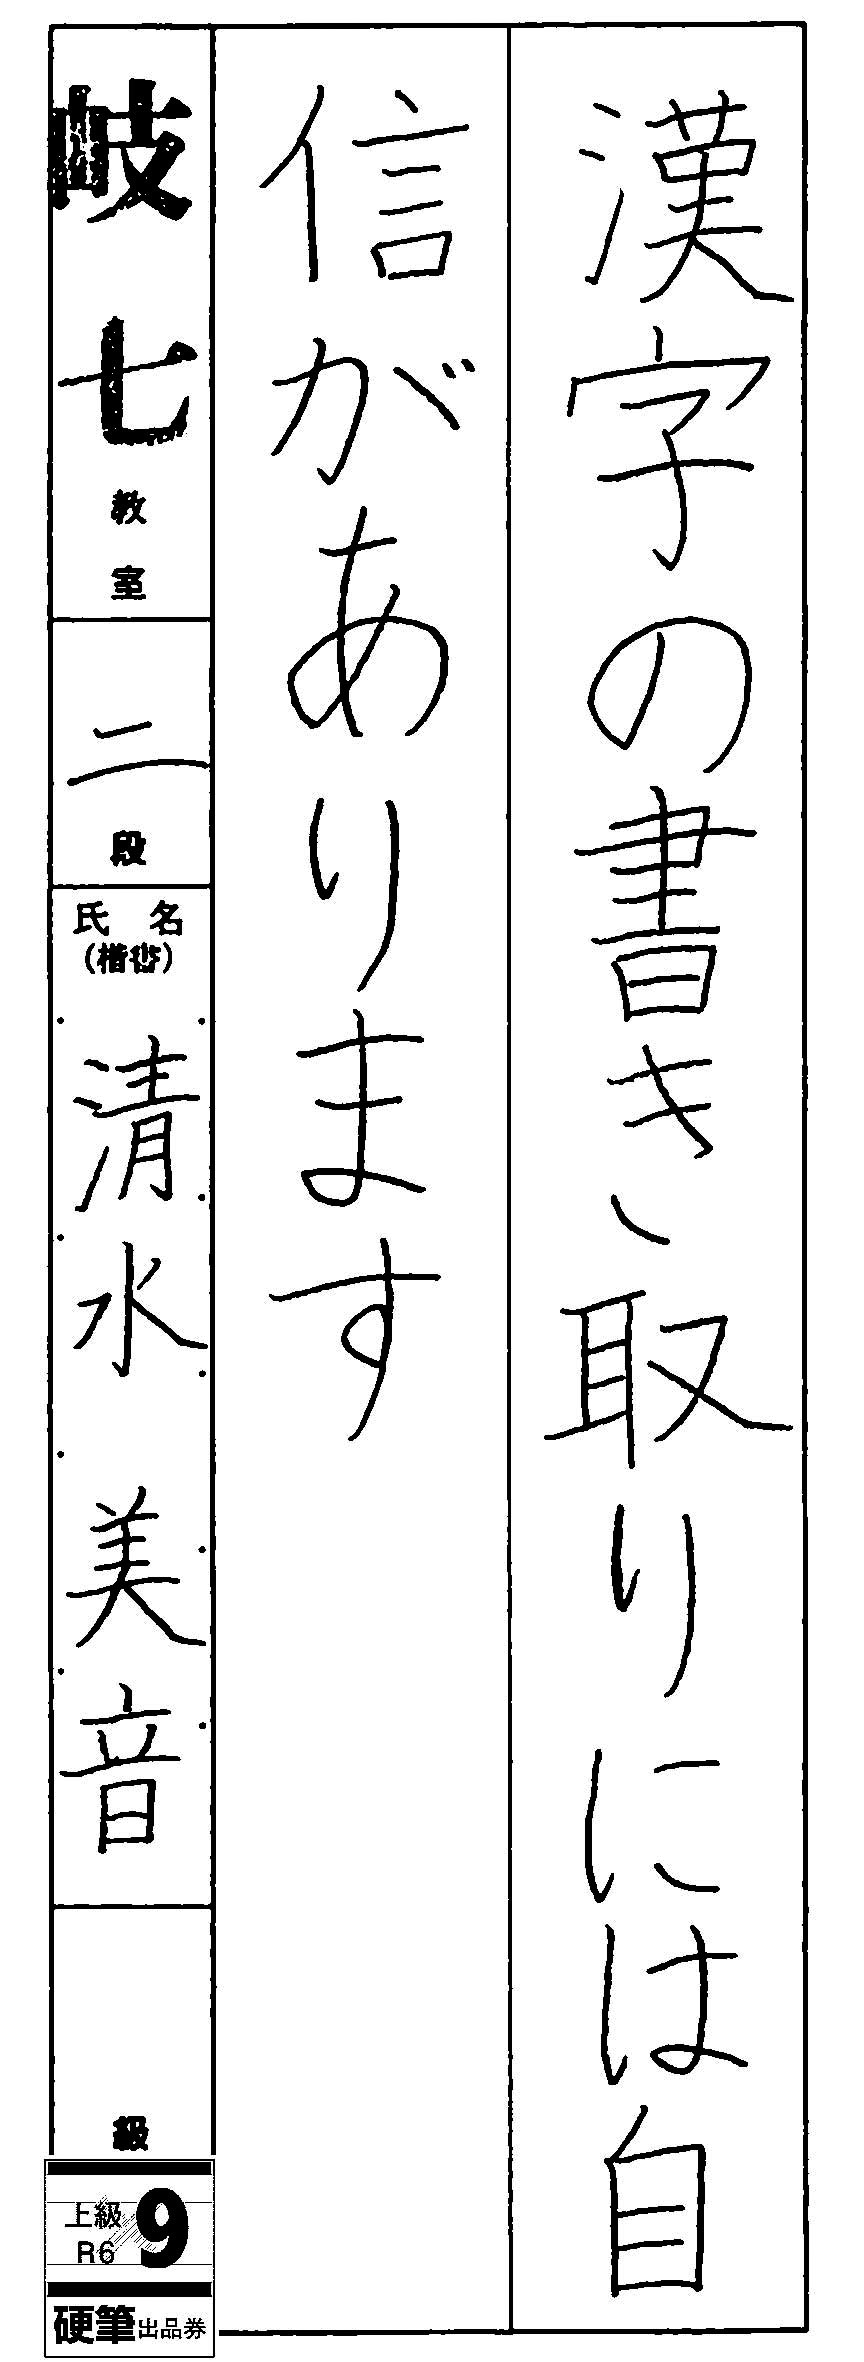 漢字の書き、取りには自
信があります
岐七教室
二段
氏名
(楷書)
清水美音
級
上級
R6
9
硬筆出品券